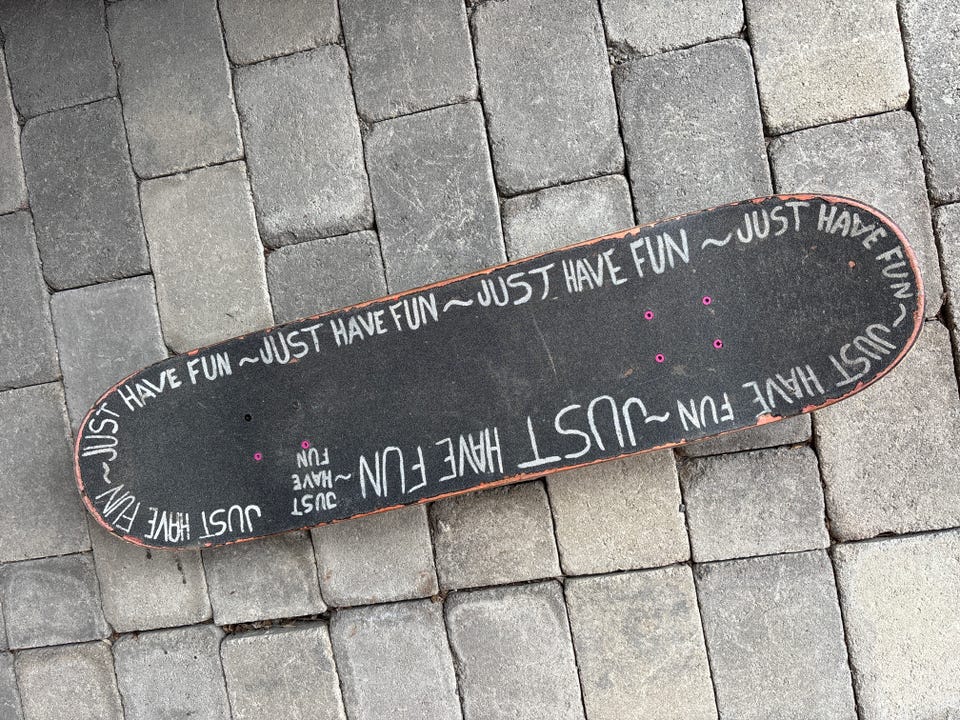 JUST HAVE FUN ~JUST HAVE FUN ~JUST HAVE FUN ~JUST HAVE FUN ~JUST HAVE FUN ~JUST HAVE FUN ~JUST HAVE FUN ~
JUST
HAVE
FUN